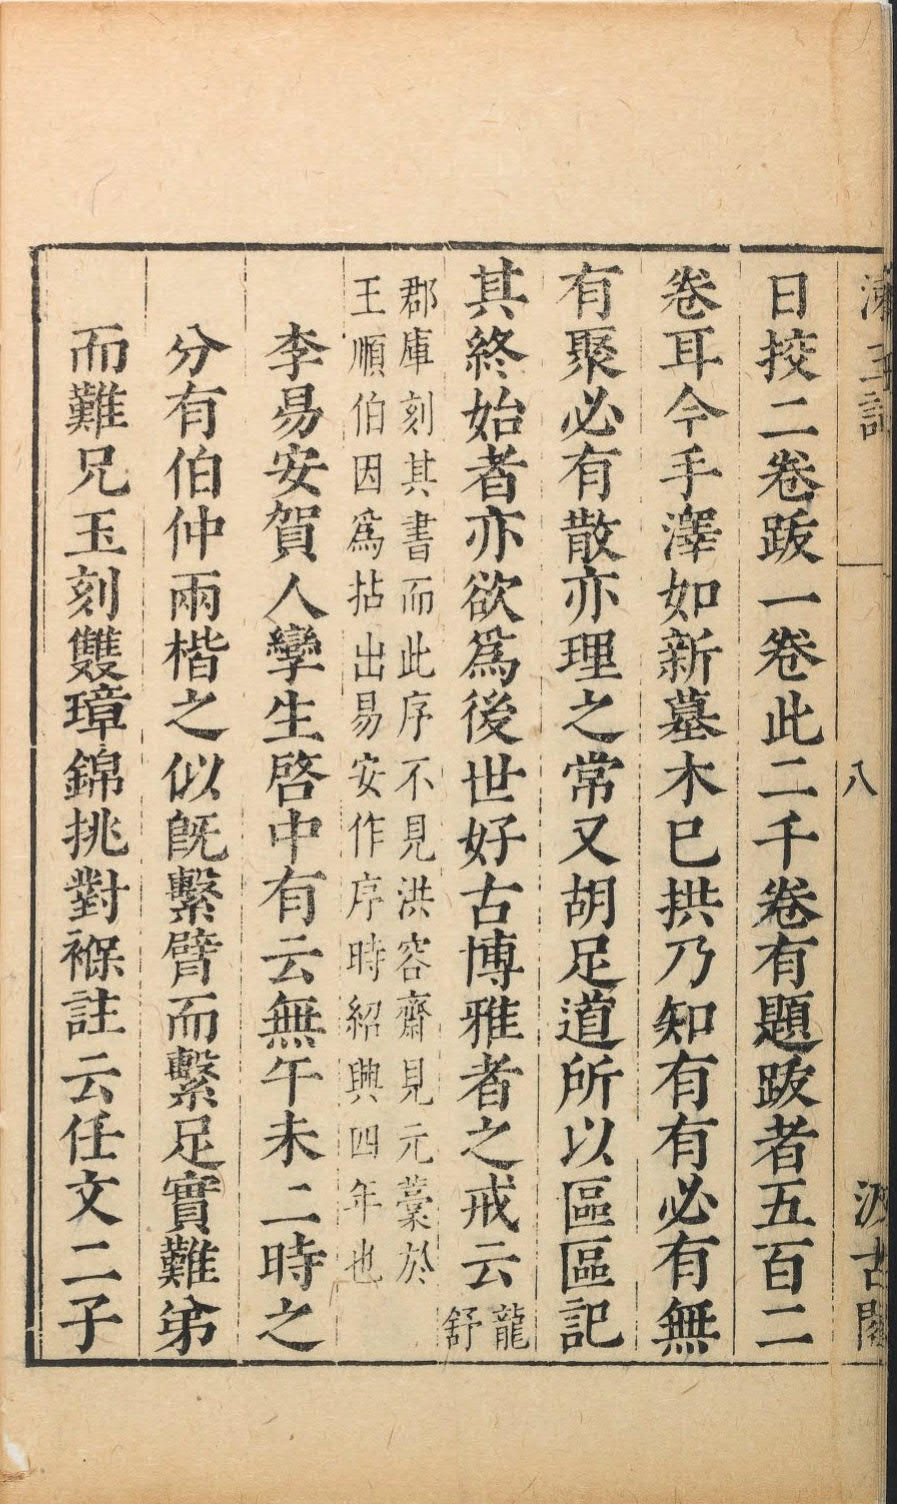 日挍二卷跋一卷此二千卷有題跋者五百二
卷耳今手澤如新墓木已拱乃知有有必有無
有聚必有散亦理之常又胡足道所以區區記
其終始者亦欲爲後世好古博雅者之戒云龍
舒
郡庫刻其書而此序不見洪容齋見元藳於
王順伯因爲拈出易安作序時紹興四年也
李易安賀人孿生啓中有云無午未二時之
分有伯仲兩楷之似旣繫臂而繫足實難弟
而難兄玉刻雙璋錦挑對褓註云任文二子
八
汲古閣